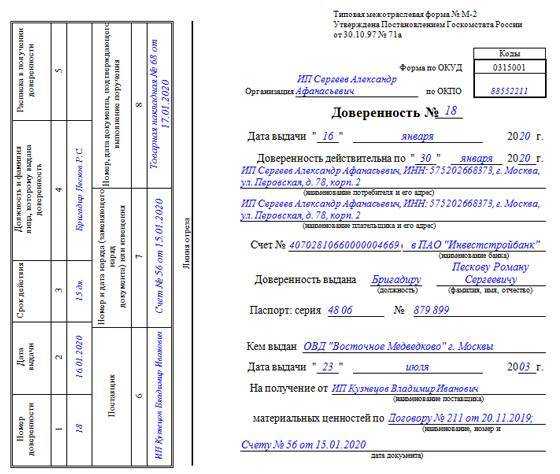 Номер доверенности
Дата выдачи
Срок действия
Должность и фамилия лица, которому выдана доверенность
Расписка в получении доверенности
1
2
3
4
5
18
16.01.2020
15 дн.
Бригадир Песков Р.С
Поставщик
Номер и дата наряда (заменяющего наряд документа) или извещения
Номер, дата документа, подтверждающего выполнение поручения
6
7
8
ИП Кузнецов Владимир Иванович
Счет № 56 от 15.01.2020
Товарная накладная № 68 от 17.01.2020
Линия отреза
Типовая межотраслевая форма № М-2
Утверждена Постановлением Госкомстата России
от 30.10.97 № 71а
Коды
Форма по ОКУД 0315001
ИП Сергеев Александр
Организация Афанасьевич, по ОКПО 88552211
Доверенность № 18
Дата выдачи " 16 " января 2020 г.
Доверенность действительна по " 30 " января 2020 г.
ИП Сергеев Александр Афанасьевич, ИНН: 575202668373, г. Москва,
ул. Перовская, д. 78, корп. 2
(наименование потребителя и его адрес)
ИП Сергеев Александр Афанасьевич, ИНН: 575202668373, г. Москва,
ул. Перовская, д. 78, корп. 2
(наименование плательщика и его адрес)
Счет № 40702810660000004669 в ПАО "Инвестстройбанк"
(наименование банка)
Пескову Роману
Доверенность выдана Бригадиру Сергеевичу
(должность) (фамилия, имя, отчество)
Паспорт: серия 48 06 № 879 899
Кем выдан ОВД "Восточное Медведково" г. Москвы
Дата выдачи " 23 " июля 2003 г.
На получение от ИП Кузнецов Владимир Иванович
(наименование поставщика)
материальных ценностей по Договору № 211 от 20.11.2019;
(наименование, номер и
Счету № 56 от 15.01.2020
дата документа)